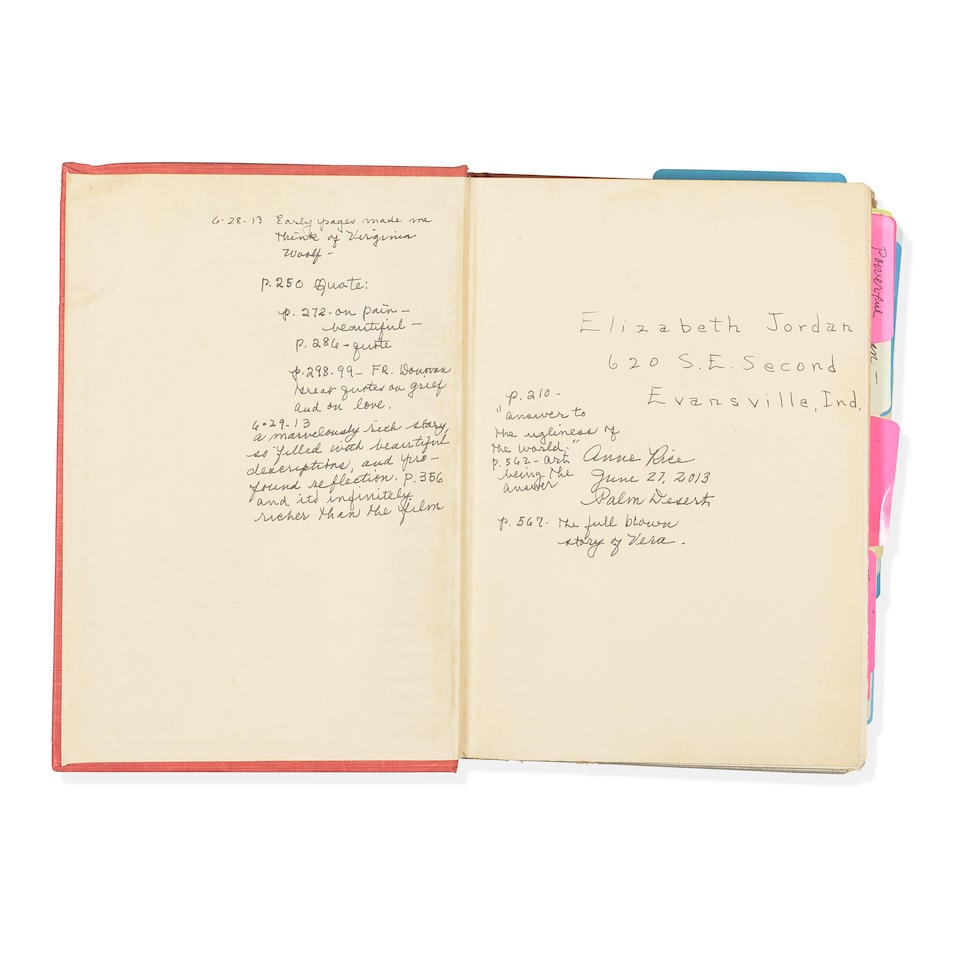 6-28-13 Early pages made me
think of Virginia
Woolf -
p.250 Quote:
p. 272 - on pain -
beautiful -
p. 286 - quote
p. 298.99 - FR. Donovan
Great quotes on grief
and on love.
6-29-13
a marvelously rich story,
so filled with beautiful
descriptions, and pro-
found reflection. p. 356
and its infinitely
richer than the film
Elizabeth Jordan
620 S.E. Second
Evansville, Ind.
p. 210 -
"answer to
the ugliness of
the world."
p. 562 - art
being the
answer
Anne Rice
June 27, 2013
Palm Desert
p. 567 - the full blown
story of Vera.
Powerful